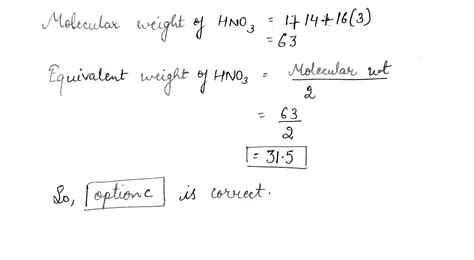 Molecular weight of HNO₃ = 1+14+16(3)
= 63
Equivalent weight of HNO₃ = Molecular wt
2
= 63
2
= 31.5
So, option c is correct.